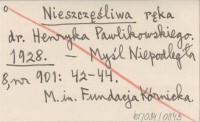 Nieszczęśliwa ręka
dr. Henryka Pawlikowskiego.
1928. — Myśl Niepodległa
8, nr 901: 42-44.
M. in. Fundacja Kórnicka.